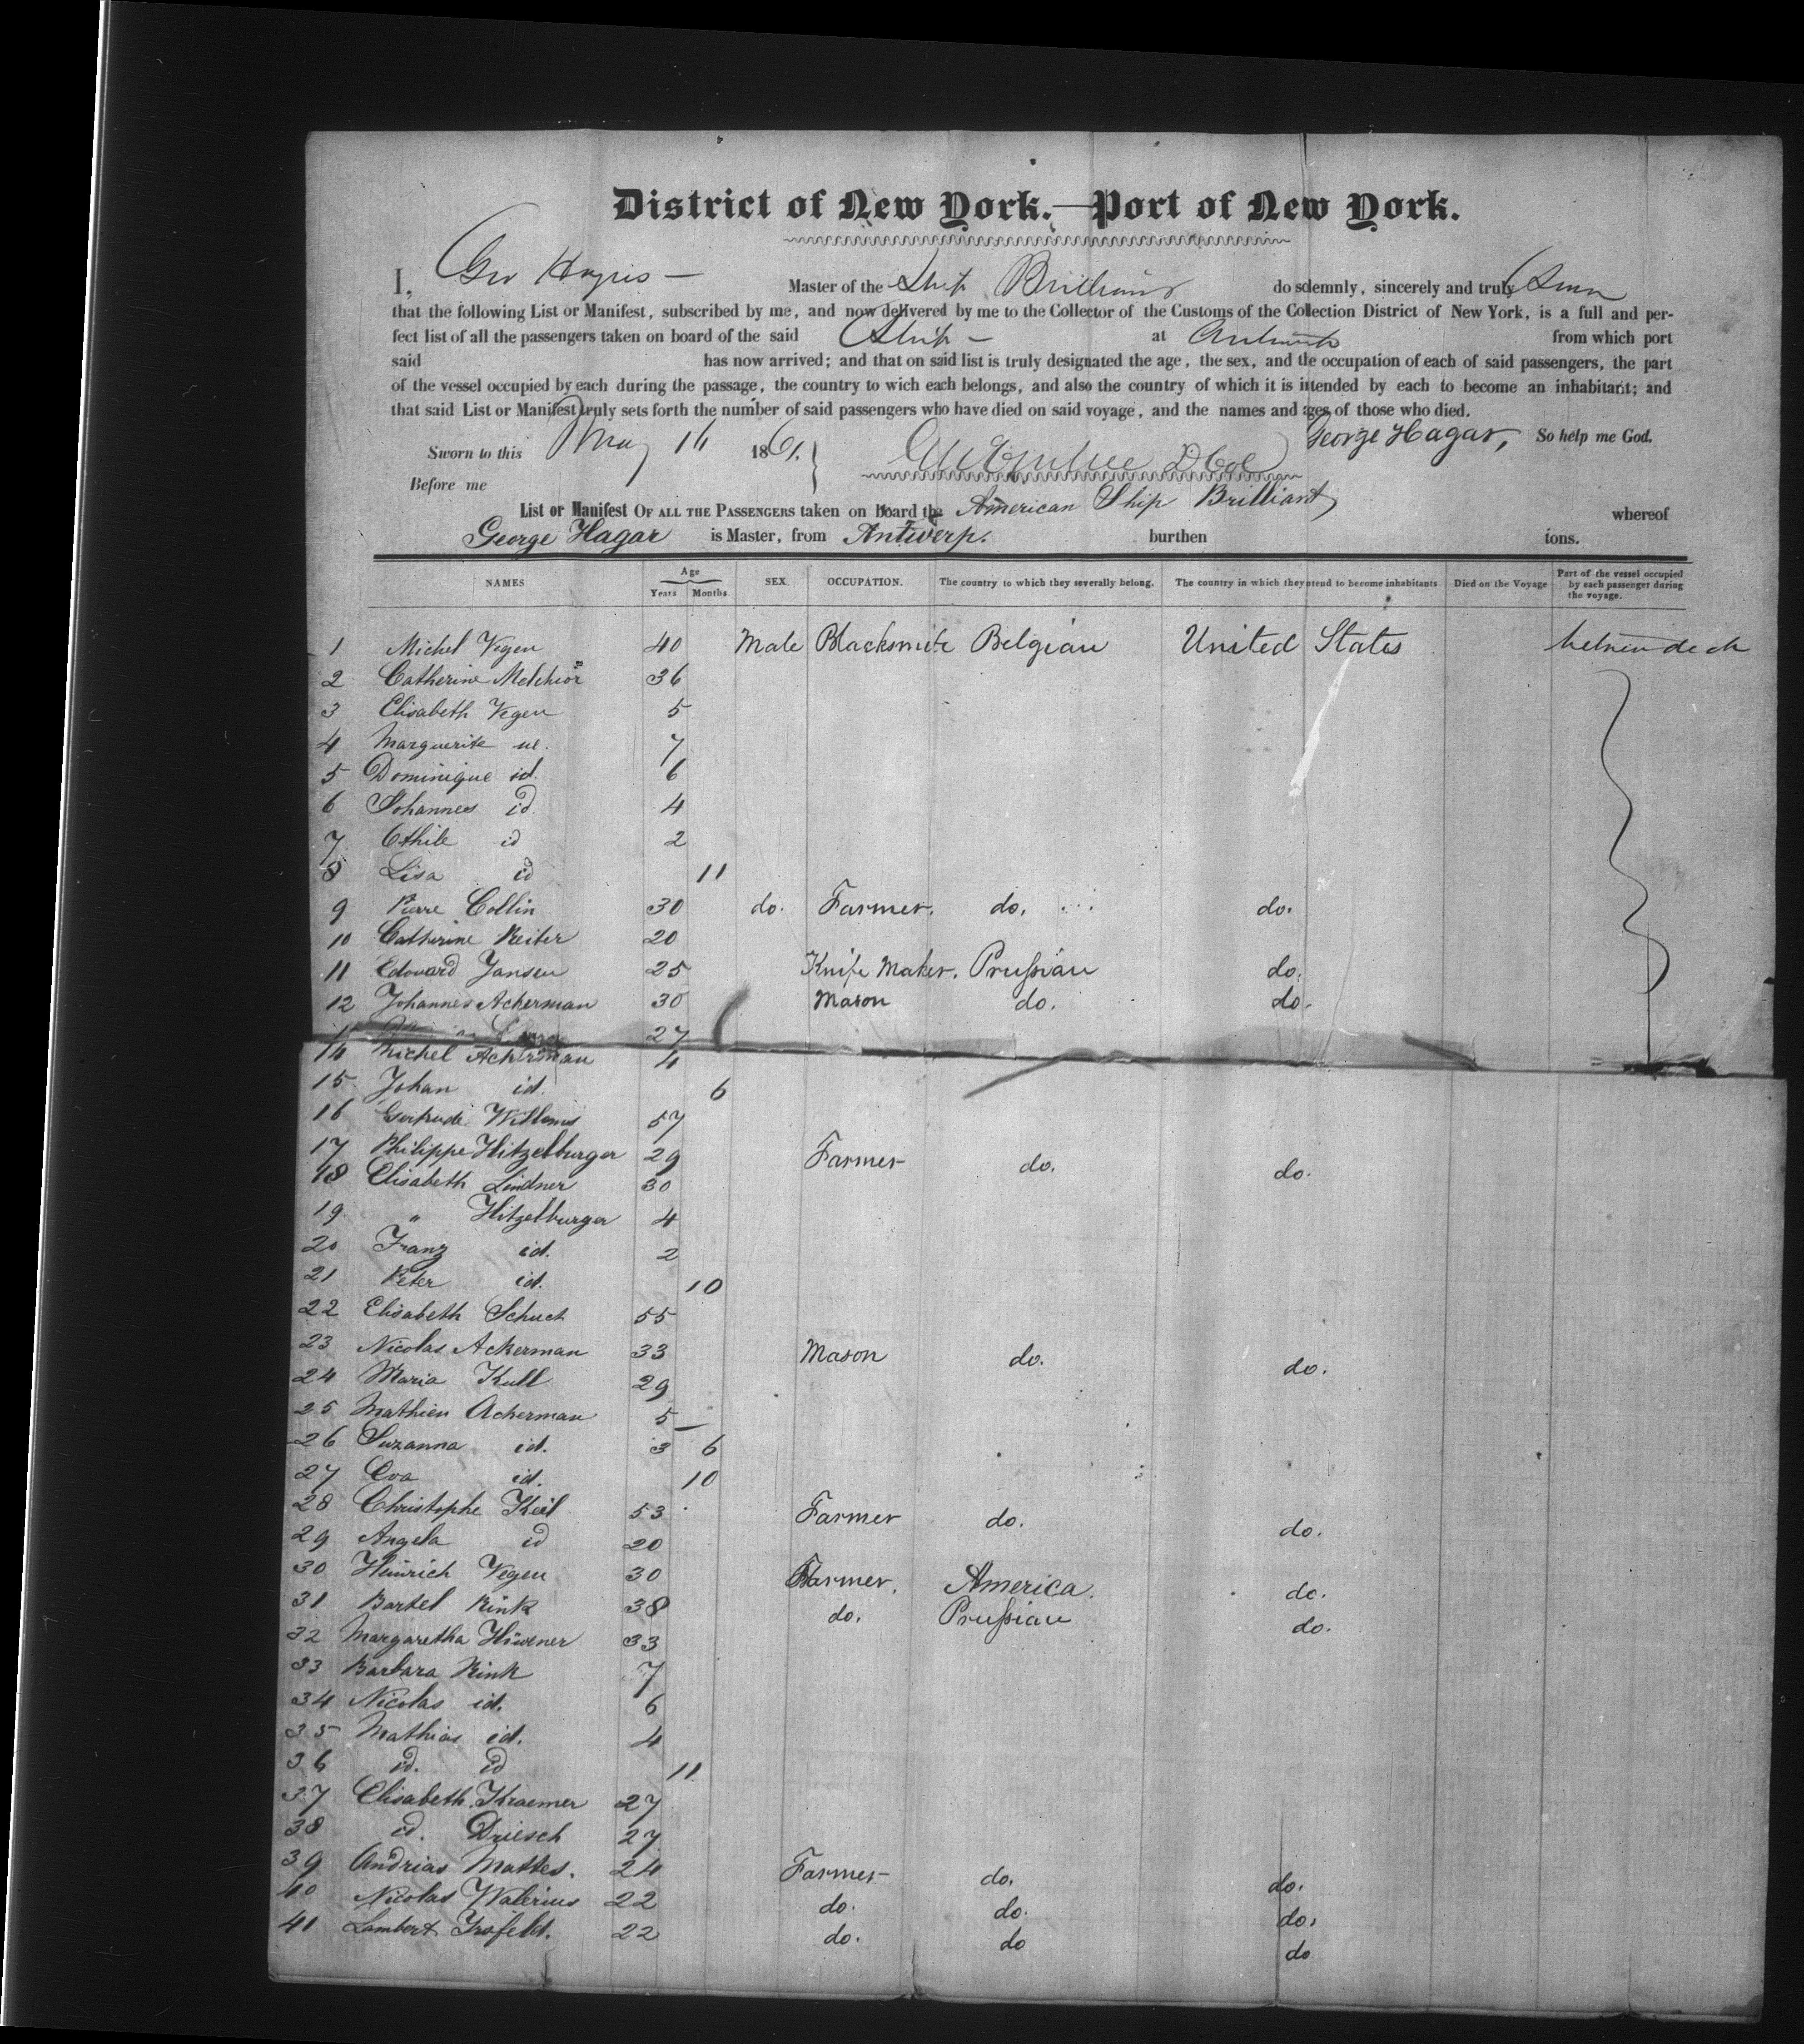 District of New York.—Port of New York.
I, Geo Master of the Ship Brilliant do solemnly, sincerely and truly
that the following List or Manifest, subscribed by me, and now delivered by me to the Collector of the Customs of the Collection District of New York, is a full and per-
fect list of all the passengers taken on board of the said Ship — at Antwerp from which port
said has now arrived; and that on said list is truly designated the age, the sex, and the occupation of each of said passengers, the part
of the vessel occupied by each during the passage, the country to wich each belongs, and also the country of which it is intended by each to become an inhabitant; and
that said List or Manifest truly sets forth the number of said passengers who have died on said voyage, and the names and ages of those who died.
George Hagar, So help me God.
Sworn to this May 14 1861.
Before me
List or Manifest OF ALL THE PASSENGERS taken on board the American Ship Brilliant whereof
George Hagar is Master, from Antwerp. burthen tons.
NAMES Age Years Months SEX. OCCUPATION. The country to which they severally belong. The country in which they intend to become inhabitants Died on the Voyage Part of the vessel occupied by each passenger during the voyage.
1 Michel Vegen 40 Male Blacksmite Belgian United States deck
2 Catherine Melchior 36
3 Elisabeth Vegen 5
4 Marguerite 7
5 Dominique id. 6
6 Johannes id. 4
7 2
8 Lisa id 11
9 Pierre Collin 30 do. Farmer. do. do.
10 Catherine Reiter 20
11 Edouard Jansen 25 Knife Maker. Prussian do.
12 Johannes Ackerman 30 Mason do. do.
27
14 Michel Ackerman 4
15 Johan id. 6
16 Gertrude Willems 57
17 Philippe Hitzelburger 29 Farmer do. do.
18 Elisabeth Lindner 30
19 " Hitzelburger 4
20 Franz id. 2
21 Peter id. 10
22 Elisabeth Schuct 55
23 Nicolas Ackerman 33 Mason do. do.
24 Maria Kull 29
25 Mathieu Ackerman 5
26 Suzanna id. 3 6
27 Eva id. 10
28 Christophe Keil 53 Farmer do. do.
29 Angela id 20
30 Heinrich Vegen 30 Farmer. America. do.
31 Bartel Rink 38 do. Prussian do.
32 Margaretha 33
33 Barbara Rink 7
34 Nicolas id. 6
35 Mathias id. 4
36 id. id 11
37 Elisabeth Kraemer 27
38 id. Driesch 27
39 Andrias Mattes. 24 Farmer do. do.
40 Nicolas Walerius 22 do. do. do.
41 Lambert 22 do. do do